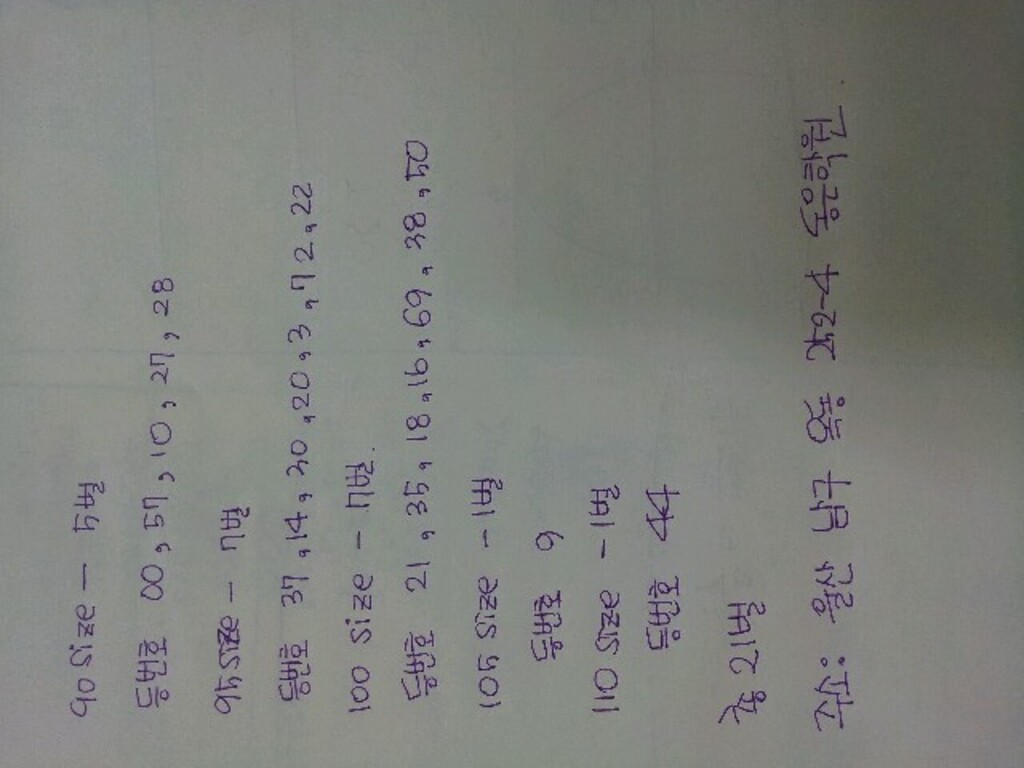 90 Size - 5벌
등번호 00, 57, 10, 27, 28
95 Size - 7벌
등번호 37, 14, 30, 20, 3, 72, 22
100 Size - 7벌.
등번호 21, 35, 18, 16, 69, 38, 50
105 Size - 1벌
등번호 9
110 Size - 1벌
등번호 44
총 21벌
주소: 울산 남구 옥동 252-4